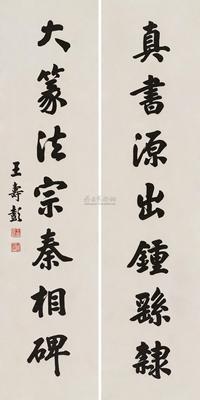 真書源出鍾繇隸
大篆法宗秦相碑
王壽彭